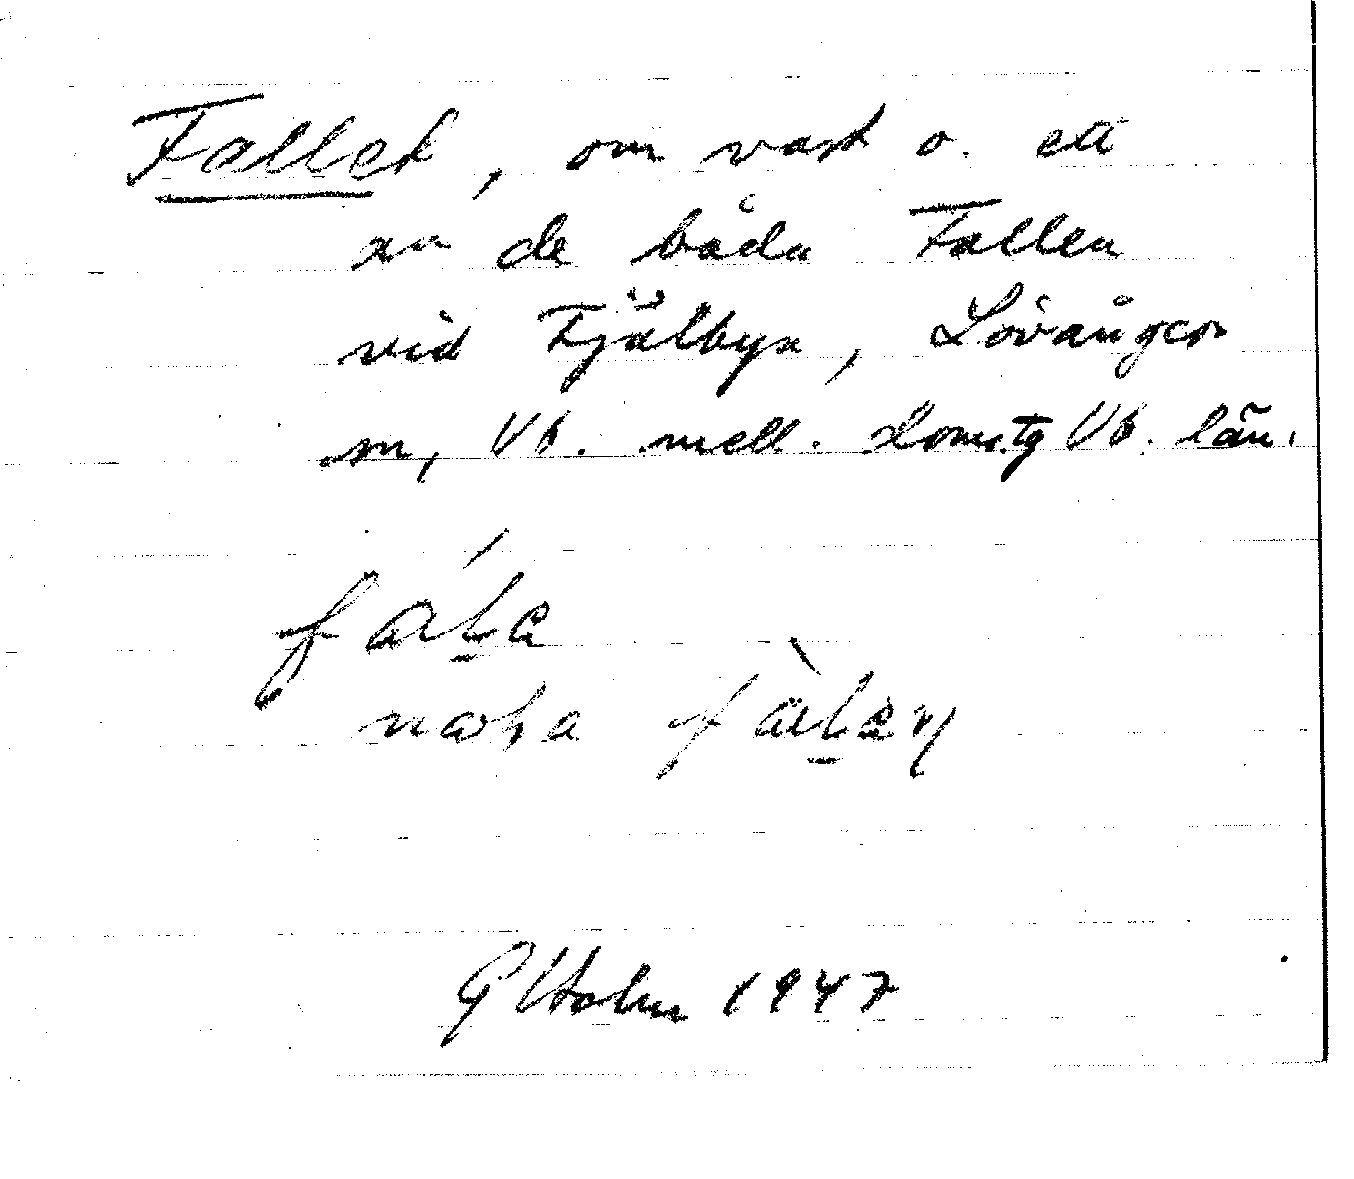 Fallet, om vart o. ett
av de båda Fallen
vid Fjälbyn, Lövångers
sn, Vb. mell. domstg Vb. län.
fáłe
fàłen
G Holm 1947